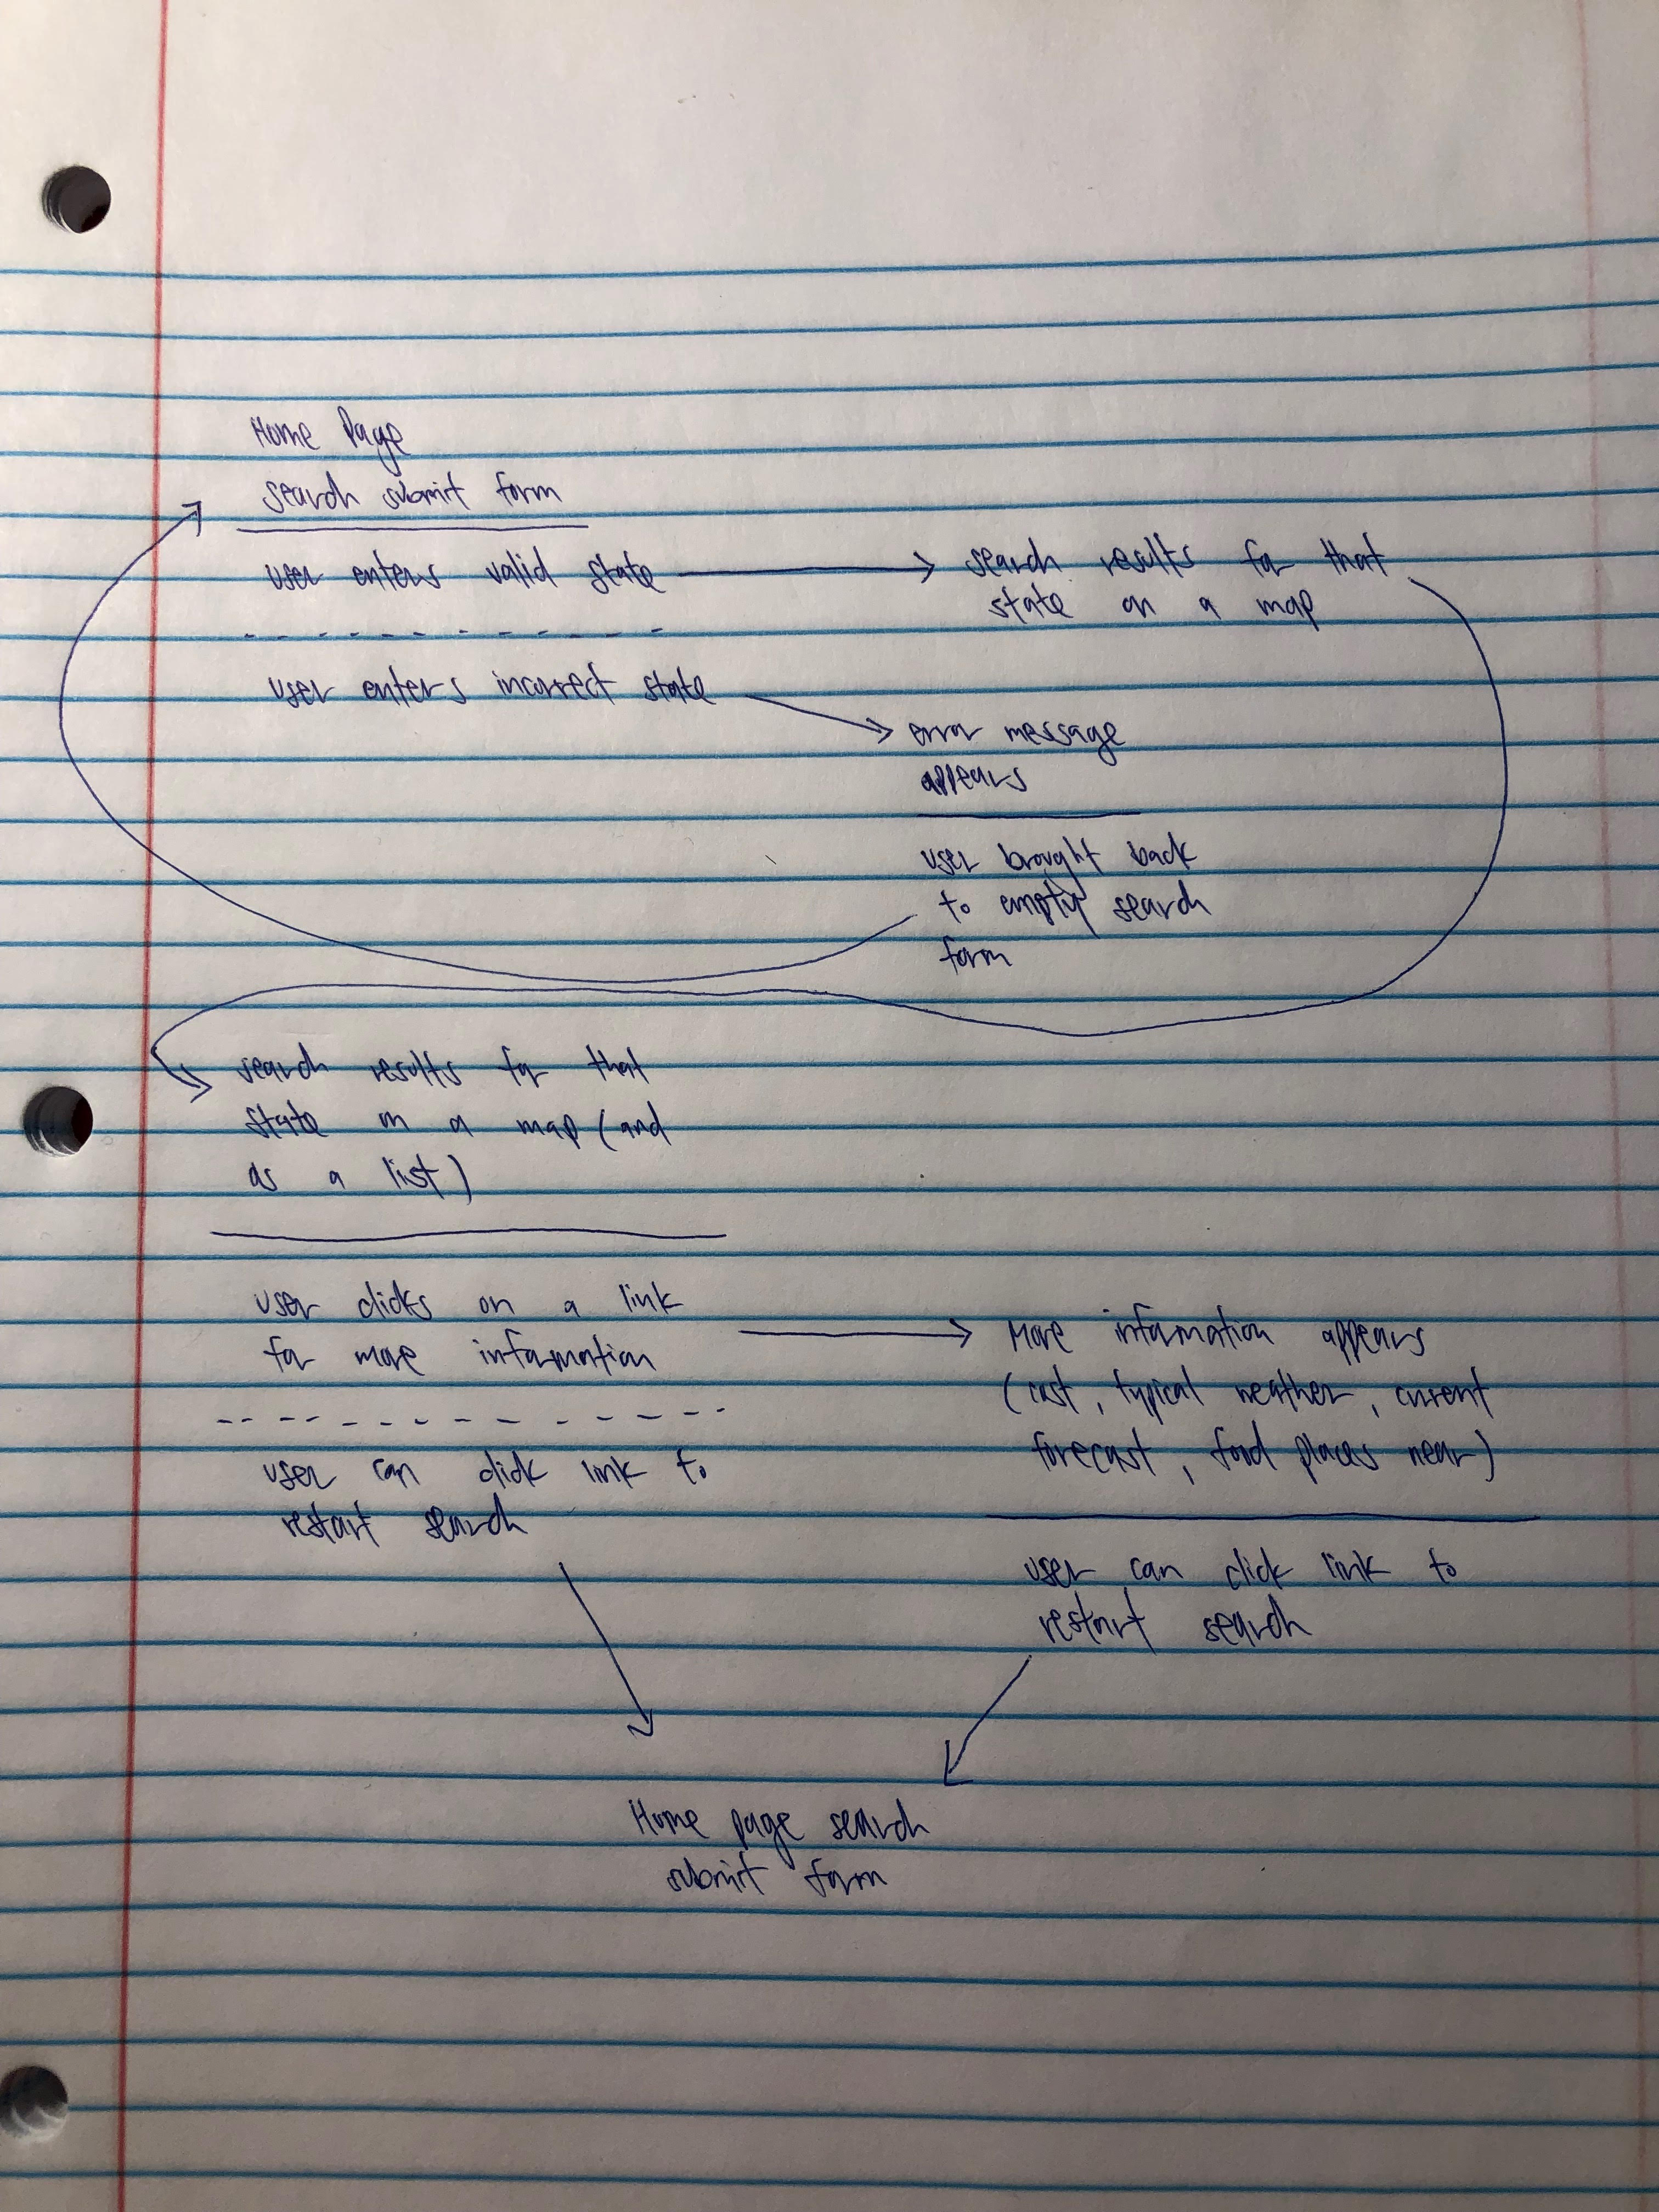 Home Page
search submit form
user enters valid state
search results for that
state on a map
user enters incorrect state
error message
appears
user brought back
to empty search
form
search results for that
state on a map (and
as a list)
user clicks on a link
for more information
More information appears
(cost, typical weather, current
forecast, food places near)
user can click link to
restart search
user can click link to
restart search
Home page search
submit form